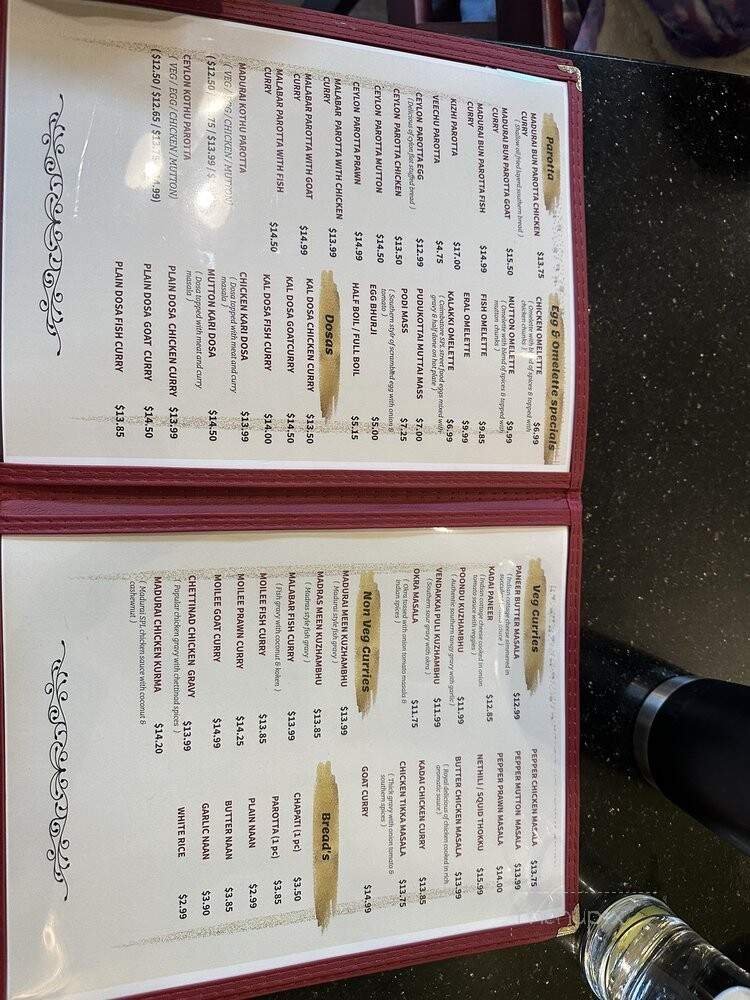 Parotta
MADURAI BUN PAROTTA CHICKEN CURRY $13.75
( Shallow oil fried layerd southern bread )
MADURAI BUN PAROTTA GOAT CURRY $15.50
MADURAI BUN PAROTTA FISH CURRY $14.99
KIZHI PAROTTA $17.00
VEECHU PAROTTA $4.75
CEYLON PAROTTA EGG $12.99
( Delicious of cylon flat stuffed bread )
CEYLON PAROTTA CHICKEN $13.50
CEYLON PAROTTA MUTTON $14.50
CEYLON PAROTTA PRAWN $14.99
MALABAR PAROTTA WITH CHICKEN CURRY $13.99
MALABAR PAROTTA WITH GOAT CURRY $14.99
MALABAR PAROTTA WITH FISH CURRY $14.50
MADURAI KOTHU PAROTTA
( VEG / EGG / CHICKEN / MUTTON )
( $12.50 / $13.99 /
CEYLON KOTHU PAROTTA
( VEG / EGG / CHICKEN / MUTTON )
( $12.50 / $12.65 /
Egg & Omelette specials
CHICKEN OMELETTE $6.99
( Omelette with of spices & topped with
chicken chunks )
MUTTON OMELETTE $9.99
( Omelette with blend of spices & topped with
mutton chunks )
FISH OMELETTE $9.85
ERAL OMELETTE $9.99
KALAKKI OMELETTE $6.99
( Coimbatore SPL street food eggs mixed with
gravy & half done on hot plate )
PUDUKOTTAI MUTTAI MASS $7.00
PODI MASS $7.25
( Southern style of scrumbled egg with onion &
tomato )
EGG BHURJI $5.00
HALF BOIL / FULL BOIL $5.15
Dosas
KAL DOSA CHICKEN CURRY $13.50
KAL DOSA GOATCURRY $14.50
KAL DOSA FISH CURRY $14.00
CHICKEN KARI DOSA $13.99
( Dosa topped with meat and curry
masala )
MUTTON KARI DOSA $14.50
( Dosa topped with meat and curry
masala )
PLAIN DOSA CHICKEN CURRY $13.99
PLAIN DOSA GOAT CURRY $14.50
PLAIN DOSA FISH CURRY $13.85
Veg Curries
PANEER BUTTER MASALA $12.99
( Indian cottage cheese simmered in
KADAI PANEER $12.85
( Indian cottage cheese cooked in onion
tomato sauce with veggies )
POONDU KUZHAMBU $11.99
( Authentic southern tangy gravy with garlic )
VENDAKKAI PULI KUZHAMBU $11.99
( Southern sour gravy with okra )
OKRA MASALA $11.75
( Okra tossed with onion tomato masala &
indian spices )
Non Veg Curries
MADURAI MEEN KUZHAMBHU $13.99
( Madurai style fish gravy )
MADRAS MEEN KUZHAMBHU $13.85
( Madras style fish gravy )
MALABAR FISH CURRY $13.99
( Fish gravy with coconut & koken )
MOILEE FISH CURRY $13.85
MOILEE PRAWN CURRY $14.25
MOILEE GOAT CURRY $14.99
CHETTINAD CHICKEN GRAVY $13.99
( Popular chicken gravy with chettinad spices )
MADURAI CHICKEN KURMA $14.20
( Madurai SPL chicken sauce with coconut &
cashewnut )
PEPPER CHICKEN MASALA $13.75
PEPPER MUTTON MASALA $13.99
PEPPER PRAWN MASALA $14.00
NETHILI / SQUID THOKKU $15.99
BUTTER CHICKEN MASALA $13.99
( Royal delicious of chicken cooked in rich
aromatic sauce )
KADAI CHICKEN CURRY $13.85
CHICKEN TIKKA MASALA $13.75
( Thick gravy with onion tomato &
southern spices )
GOAT CURRY $14.99
Bread's
CHAPATI (1 pc) $3.50
PAROTTA (1 pc) $3.85
PLAIN NAAN $2.99
BUTTER NAAN $3.85
GARLIC NAAN $3.90
WHITE RICE $2.99
menup